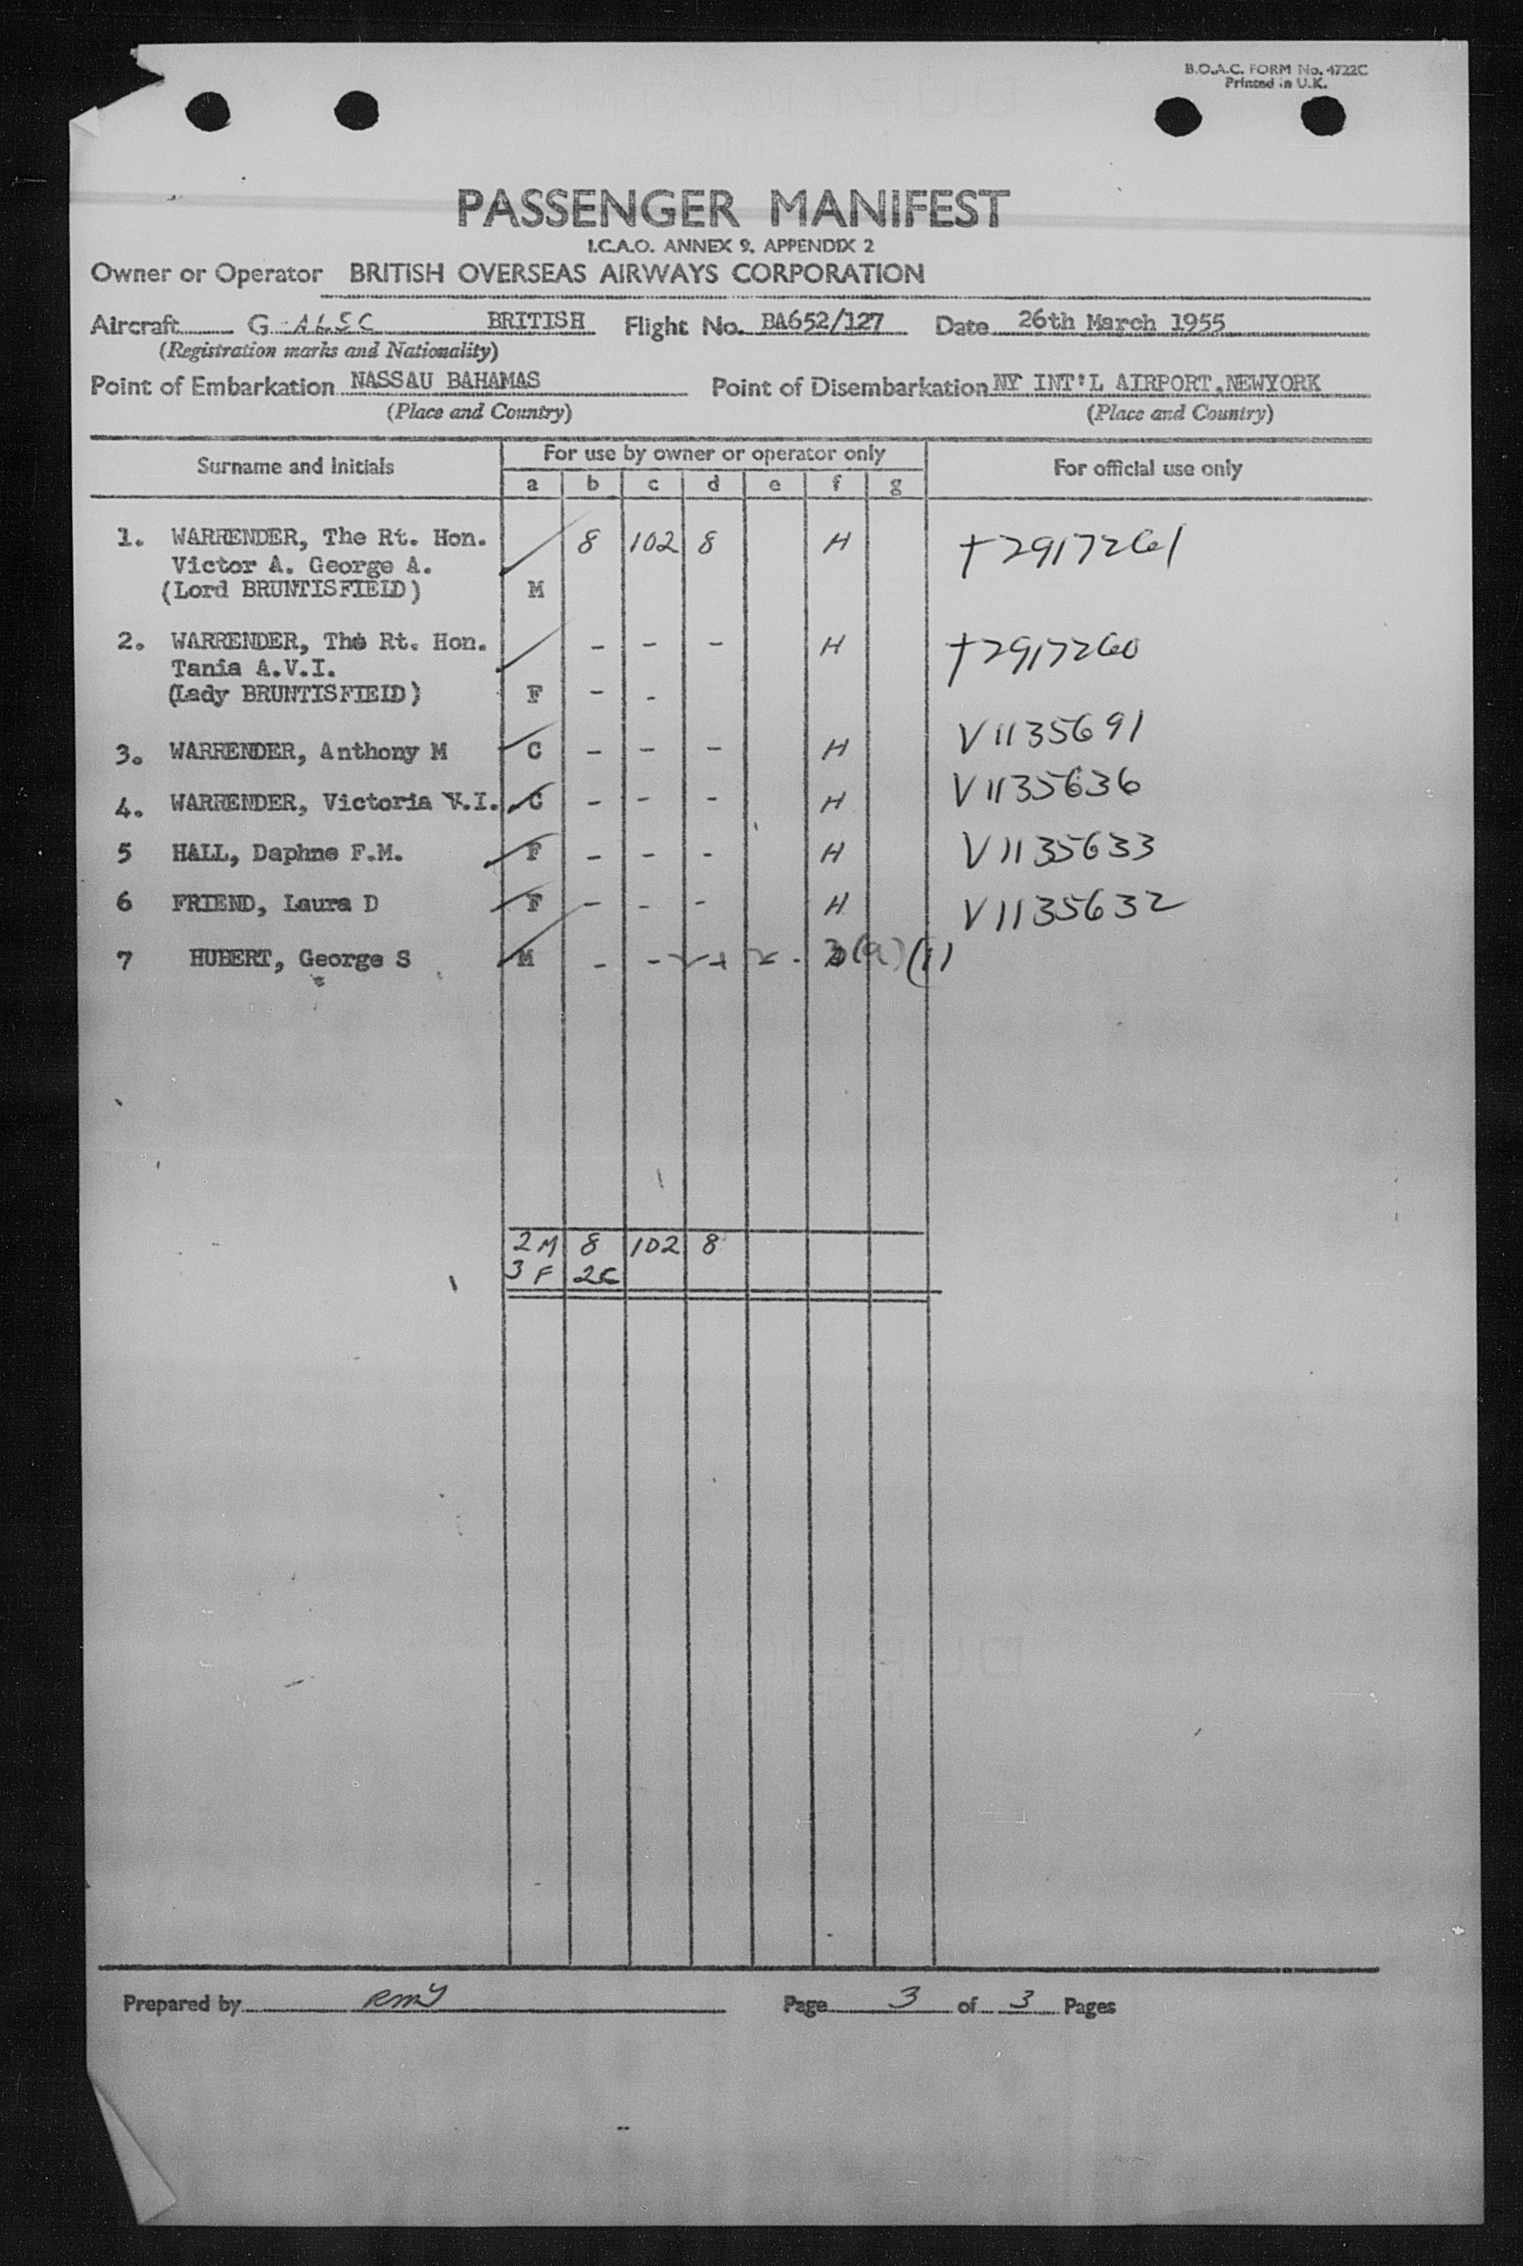 B.O.A.C. FORM No. 4722C
Printed in U.K.
PASSENGER MANIFEST
I.C.A.O. ANNEX 9. APPENDIX 2
Owner or Operator BRITISH OVERSEAS AIRWAYS CORPORATION
Aircraft G-ALSC BRITISH Flight No. BA652/127 Date 26th March 1955
(Registration marks and Nationality)
Point of Embarkation NASSAU BAHAMAS Point of Disembarkation NY INT'L AIRPORT, NEWYORK
(Place and Country) (Place and Country)
Surname and Initials For use by owner or operator only For official use only
a b c d e f g
1. WARRENDER, The Rt. Hon. 8 102 8 H T2917261
Victor A. George A.
(Lord BRUNTISFIELD) M
2. WARRENDER, The Rt. Hon. - - - H T2917260
Tania A.V.I.
(Lady BRUNTISFIELD) F - -
3. WARRENDER, Anthony M C - - - H V1135691
4. WARRENDER, Victoria V.I. C - - - H V1135636
5 HALL, Daphne F.M. F - - - H V1135633
6 FRIEND, Laura D F - - - H V1135632
7 HUBERT, George S M - - (a) (1)
2M 8 102 8
3F 2C
Prepared by RMY Page 3 of 3 Pages